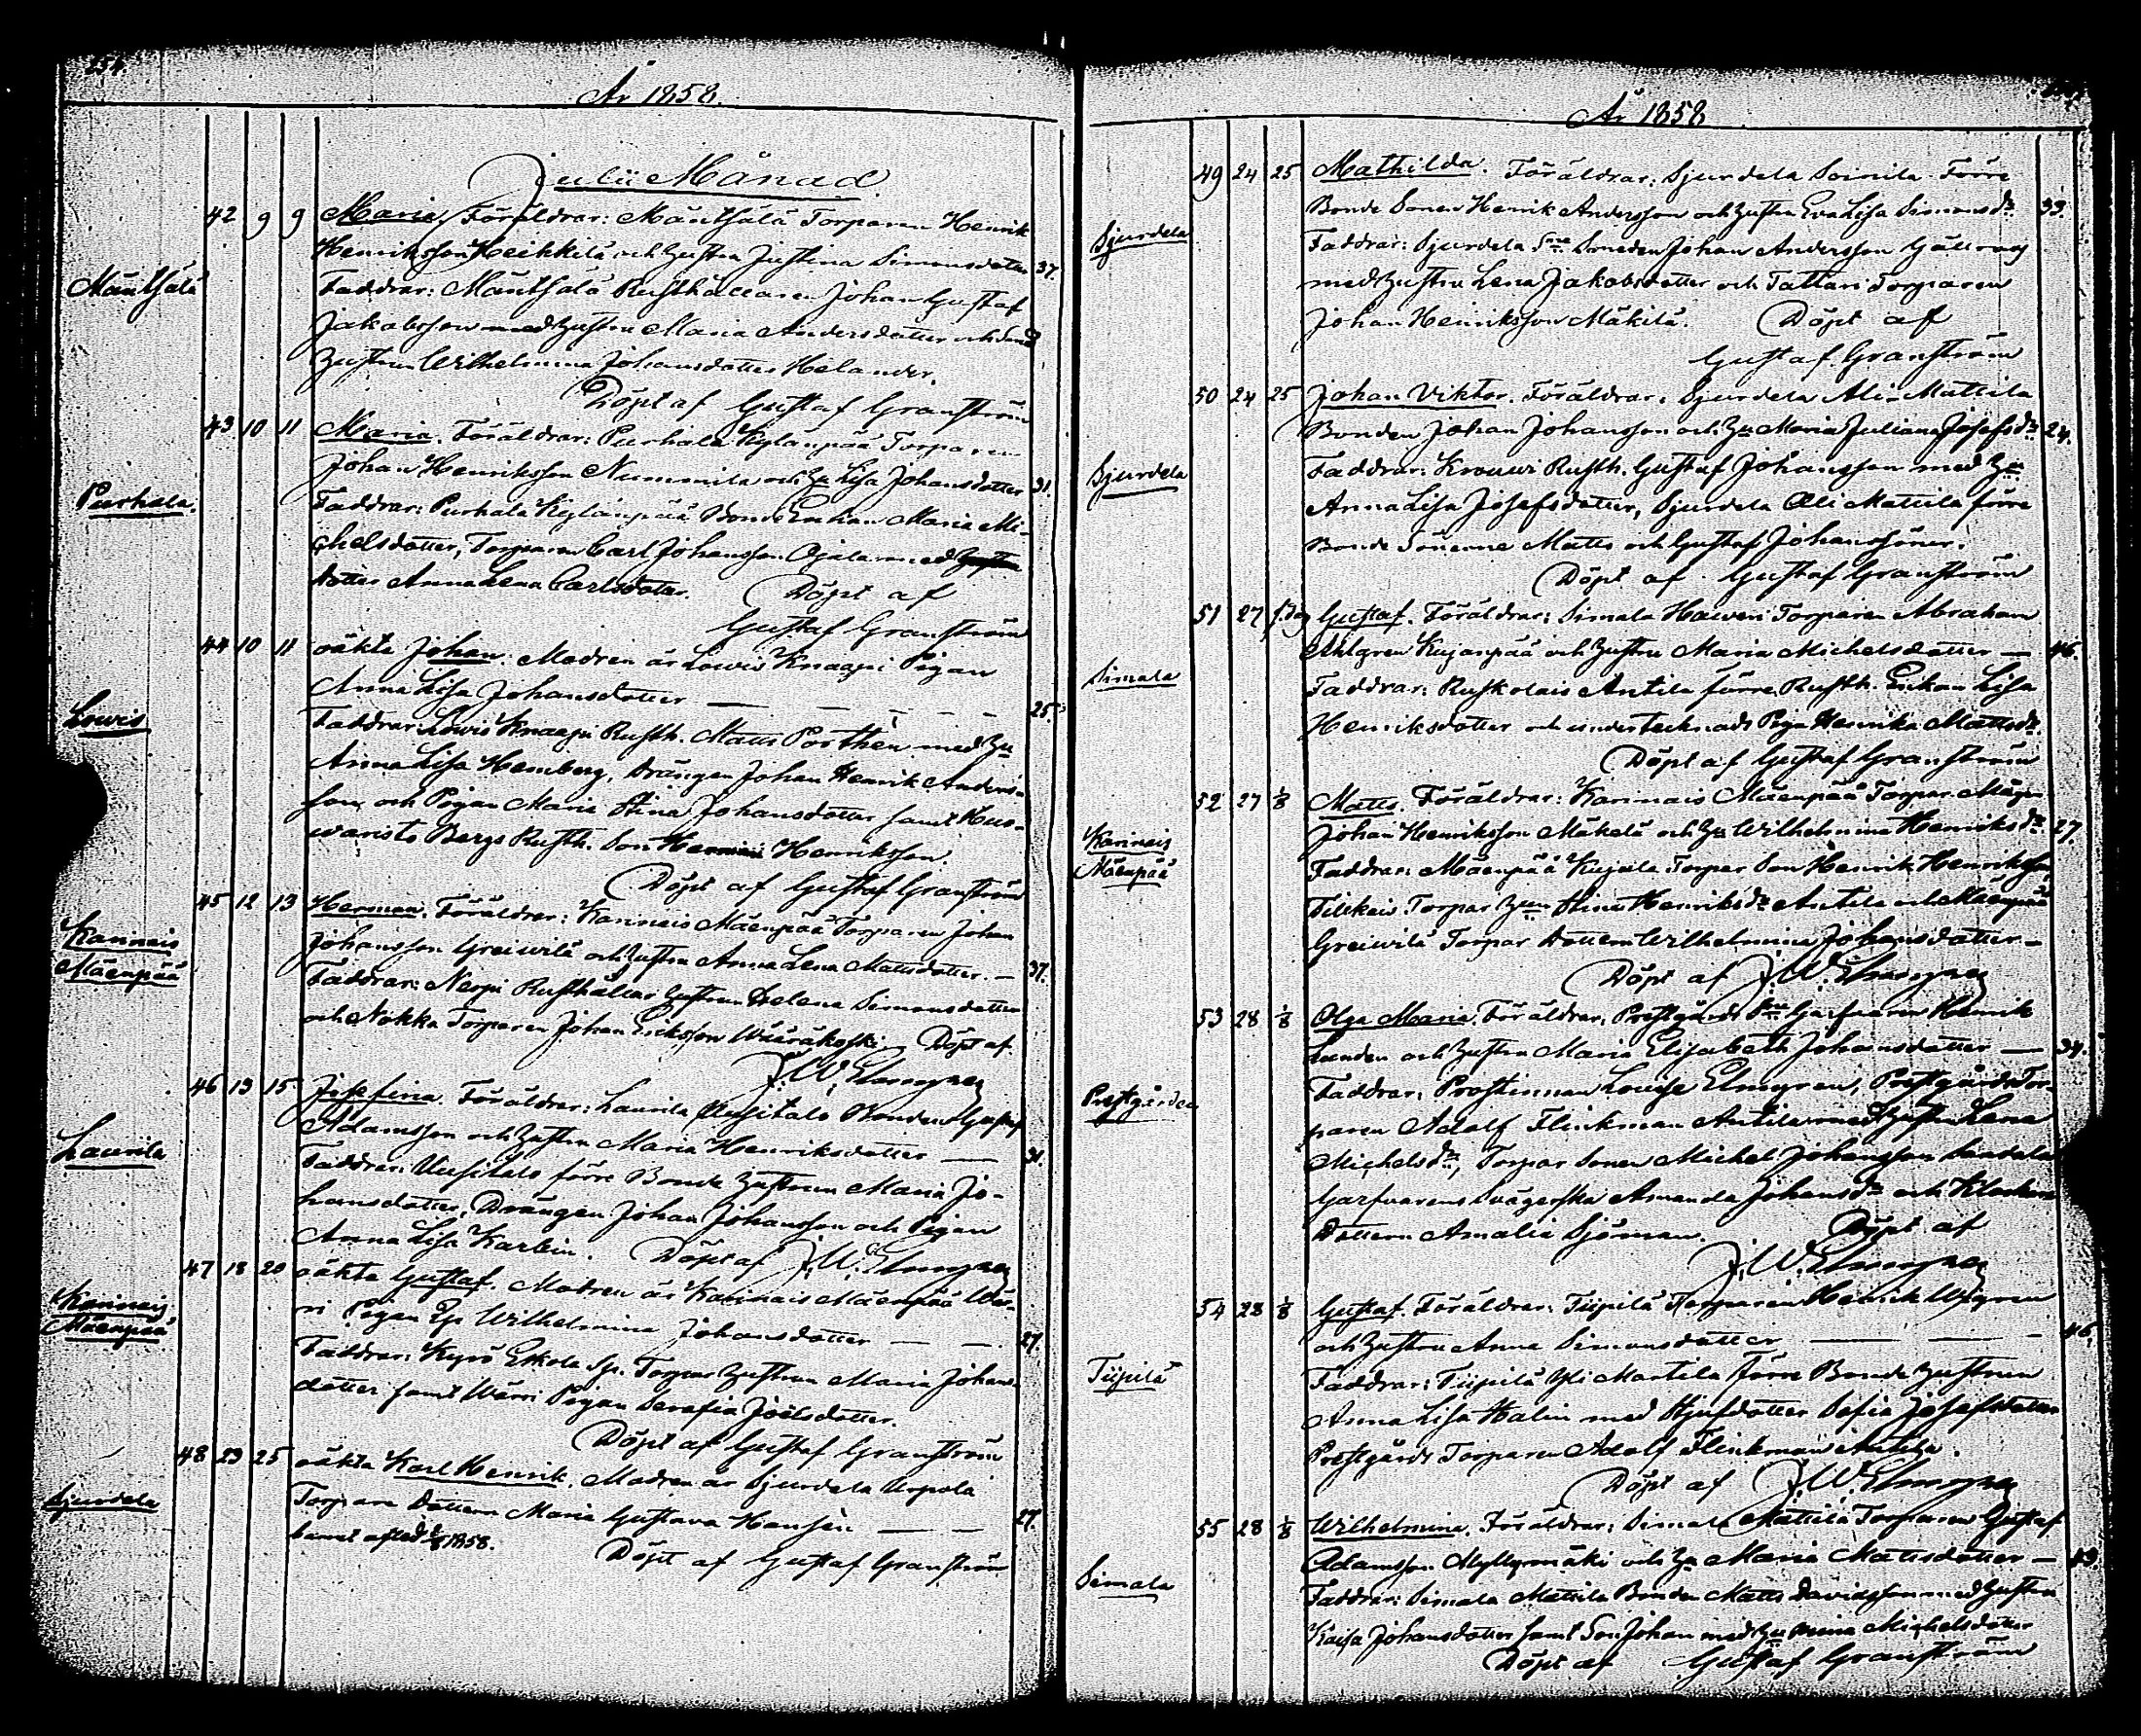 År 1858.
Julii Månad
Mäntsälä
42 9 9 Maria. Föräldrar: Mäntsälä Torparen Henrik
Henriksson Heikkilä och hustru Justina Simonsdotter 37.
Faddrar: Mäntsälä Rusthållaren Johan Gustaf
Jakobsson med hustru Maria Andersdotter och
hustrun Wilhelmina Johansdotter Helander.
Döpt af Gustaf Granström
Purhala
43 10 11 Maria. Föräldrar: Purhala Kylänpää Torparen
Johan Henriksson Nummila och Hu Lisa Johansdotter 31.
Faddrar: Purhala Kylänpää Bonde Enkan Maria Mi-
chelsdotter, Torparen Carl Johansson Ojala med
dotter Anna Lena Carlsdotter. Döpt af
Gustaf Granström
Lowis
44 10 11 oäkta Johan. Modren är Lowis Knaapi Pigan
Anna Lisa Johansdotter — 25
Faddrar: Lowis Knaapi Rusth. Matts Porthen med Hu
Anna Lisa Hemberg, Drängen Johan Henrik Anders-
son och Pigan Maria Stina Johansdotter samt Kus-
waristo Bergs Rusth. Son Henriksson.
Döpt af Gustaf Granström
Karinais
Mäenpää
45 12 13 Herman. Föräldrar: Karinais Mäenpää Torparen Johan
Johansson Greiwilä och hustru Anna Lena Mattsdotter. — 37.
Faddrar: Neopi Rusthållar hustrun Helena Simonsdotter
och Nokka Torparen Johan Ericksson Wääräkoski. Döpt af
J. W. Elmgren
Laurila
46 13 15 Josefina. Föräldrar: Laurila Uusitalo Bonden Gustaf
Adamsson och hustru Maria Henriksdotter — 31.
Faddrar: Uusitalo förre Bonde hustrun Maria Jo-
hansdotter, Drängen Johan Johansson och Pigan
Anna Lisa Karlin. Döpt af J. W. Elmgren
Karinais
Mäenpää
47 18 20 oäkta Gustaf. Modren är Karinais Mäenpää Wär-
ri Pigan Ep Wilhelmina Johansdotter — 27.
Faddrar: Kyrö Eskola Sp. Torpar hustrun Maria Johans-
dotter samt Wärri Pigan Serafia Joelsdotter.
Döpt af Gustaf Granström
Sjurdela
48 23 25 oäkta Karl Henrik. Modren är Sjurdela Urpola
Torpare dottern Maria Gustava Hansén — 27.
barnet afled 1858.
Döpt af Gustaf Granström
År 1858
Sjurdela
49 24 25 Mathilda. Föräldrar: Sjurdela Soinila Förre
Bonde Sonen Henrik Andersson och hustru Eva Lisa Simonsdr 33.
Faddrar: Sjurdela Smeden Johan Andersson
med hustru Lena Jakobsdotter och Tattari Torparen
Johan Henriksson Mäkilä. Döpt af
Gustaf Granström
Sjurdela
50 24 25 Johan Viktor. Föräldrar: Sjurdela Ali-Mattila
Bonden Johan Johansson och Hu Maria Juliana Josefsdr 24.
Faddrar: Krouwi Rusth. Gustaf Johansson med Hu
Anna Lisa Josefsdotter, Sjurdela Ali Mattila förre
Bonde Sönerne Matts och Gustaf Johanssöner.
Döpt af Gustaf Granström
Simala
51 27 s. dag Gustaf. Föräldrar: Simala Haweri Torparen Abraham
Ahlgren Kujanpää och hustru Maria Michelsdotter — 46.
Faddrar: Ruskolais Antila förre Rusth. Enkan Lisa
Henriksdotter och undertecknads Piga Henrika Mattsdr.
Döpt af Gustaf Granström
Karinais
Mäenpää
52 27 1/8 Matts. Föräldrar: Karinais Mäenpää Torpar Mågen
Johan Henriksson Mäkelä och Hu Wilhelmina Henriksdr 27.
Faddrar: Mäenpää Kujala Torpar Son Henrik Henriksson,
Tilikais Torpar Hun Stina Henriksdr Antila och Mäenpää
Greiwilä Torpar dottern Wilhelmina Johansdotter —
Döpt af J. W. Elmgren
Prestgården
53 28 1/8 Olga Maria. Föräldrar: Prestgårds Garfvaren Henrik
Lunden och hustru Maria Elisabeth Johansdotter — 34.
Faddrar: Prostinnan Louise Elmgren, Prestgårds Tor-
paren Adolf Flinkman Antila med hustru Lena
Michelsdr, Torpar Sonen Michel Johansson
Garfvarens Svägerska Amanda Johansdr och Klockare
Dottern Amalia Sjöman. Döpt af
J. W. Elmgren
Tiipilä
54 28 1/8 Gustaf. Föräldrar: Tiipilä Torparen Henrik Wigren
och hustru Anna Simonsdotter — 46.
Faddrar: Tiipilä Yli Martila Förre Bonde hustrun
Anna Lisa Halin med Styfdotter Sofia Josefsdotter
Prestgårds Torparen Adolf Flinkman Antila.
Döpt af J. W. Elmgren
Simala
55 28 1/8 Wilhelmina. Föräldrar: Simala Mattila Torparen Gustaf
Adamsson Myllymäki och Hu Maria Mattsdotter — 43.
Faddrar: Simala Mattila Bonden Matts Davidsson med hustru
Kaisa Johansdotter samt Son Johan med Hu Mina Michelsdotter
Döpt af Gustaf Granström